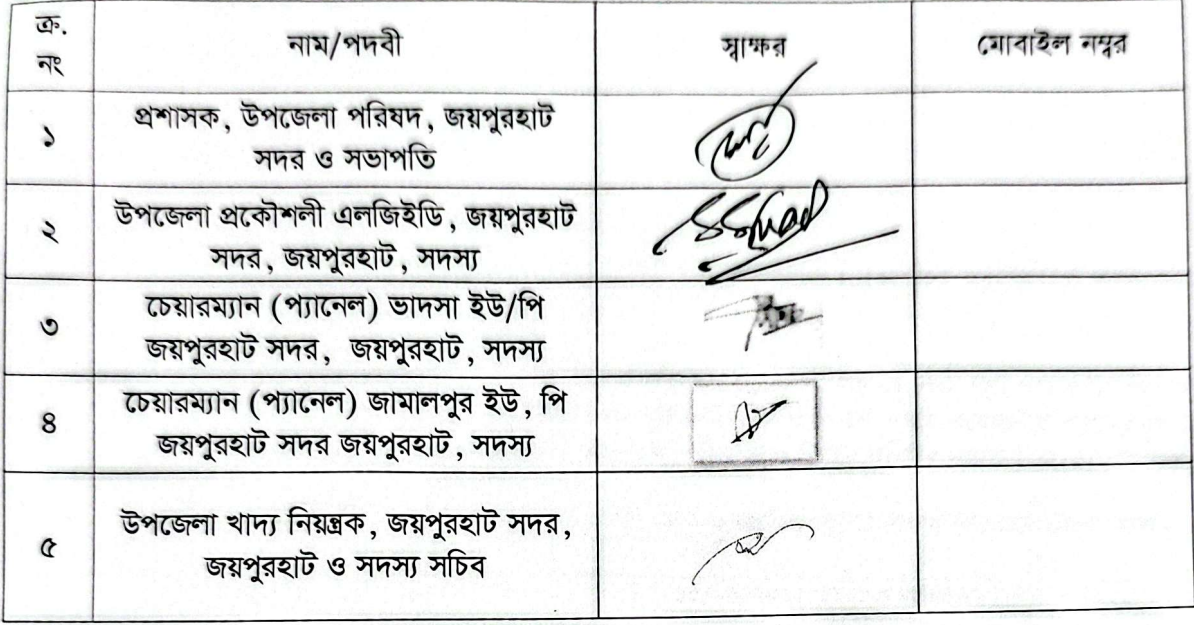 ক্র. নং
নাম/পদবী
স্বাক্ষর
মোবাইল নম্বর
১
প্রশাসক, উপজেলা পরিষদ, জয়পুরহাট
সদর ও সভাপতি
২
উপজেলা প্রকৌশলী এলজিইডি, জয়পুরহাট
সদর, জয়পুরহাট, সদস্য
৩
চেয়ারম্যান (প্যানেল) ভাদসা ইউ/পি
জয়পুরহাট সদর, জয়পুরহাট, সদস্য
৪
চেয়ারম্যান (প্যানেল) জামালপুর ইউ, পি
জয়পুরহাট সদর জয়পুরহাট, সদস্য
৫
উপজেলা খাদ্য নিয়ন্ত্রক, জয়পুরহাট সদর,
জয়পুরহাট ও সদস্য সচিব